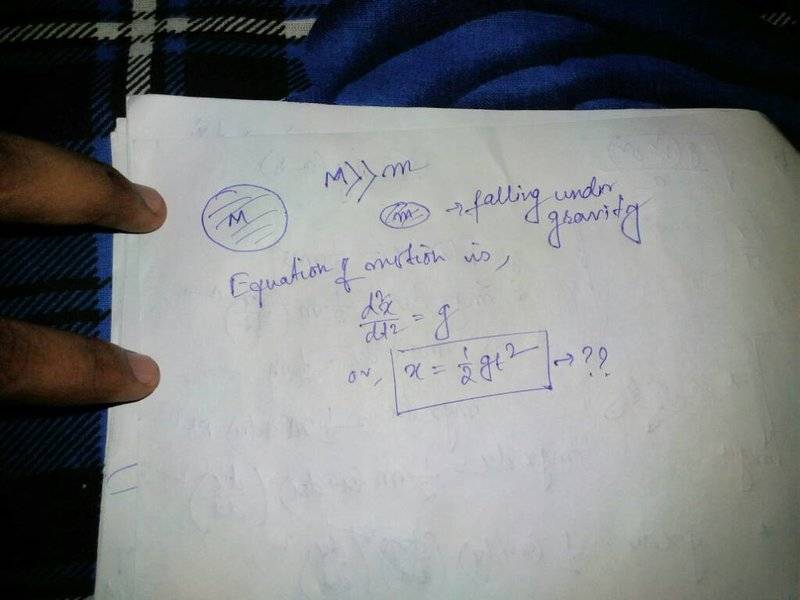 M>>m
M
m → falling under
gravity
Equation of motion is,
d²x/dt² = g
or, x = ½gt² → ??